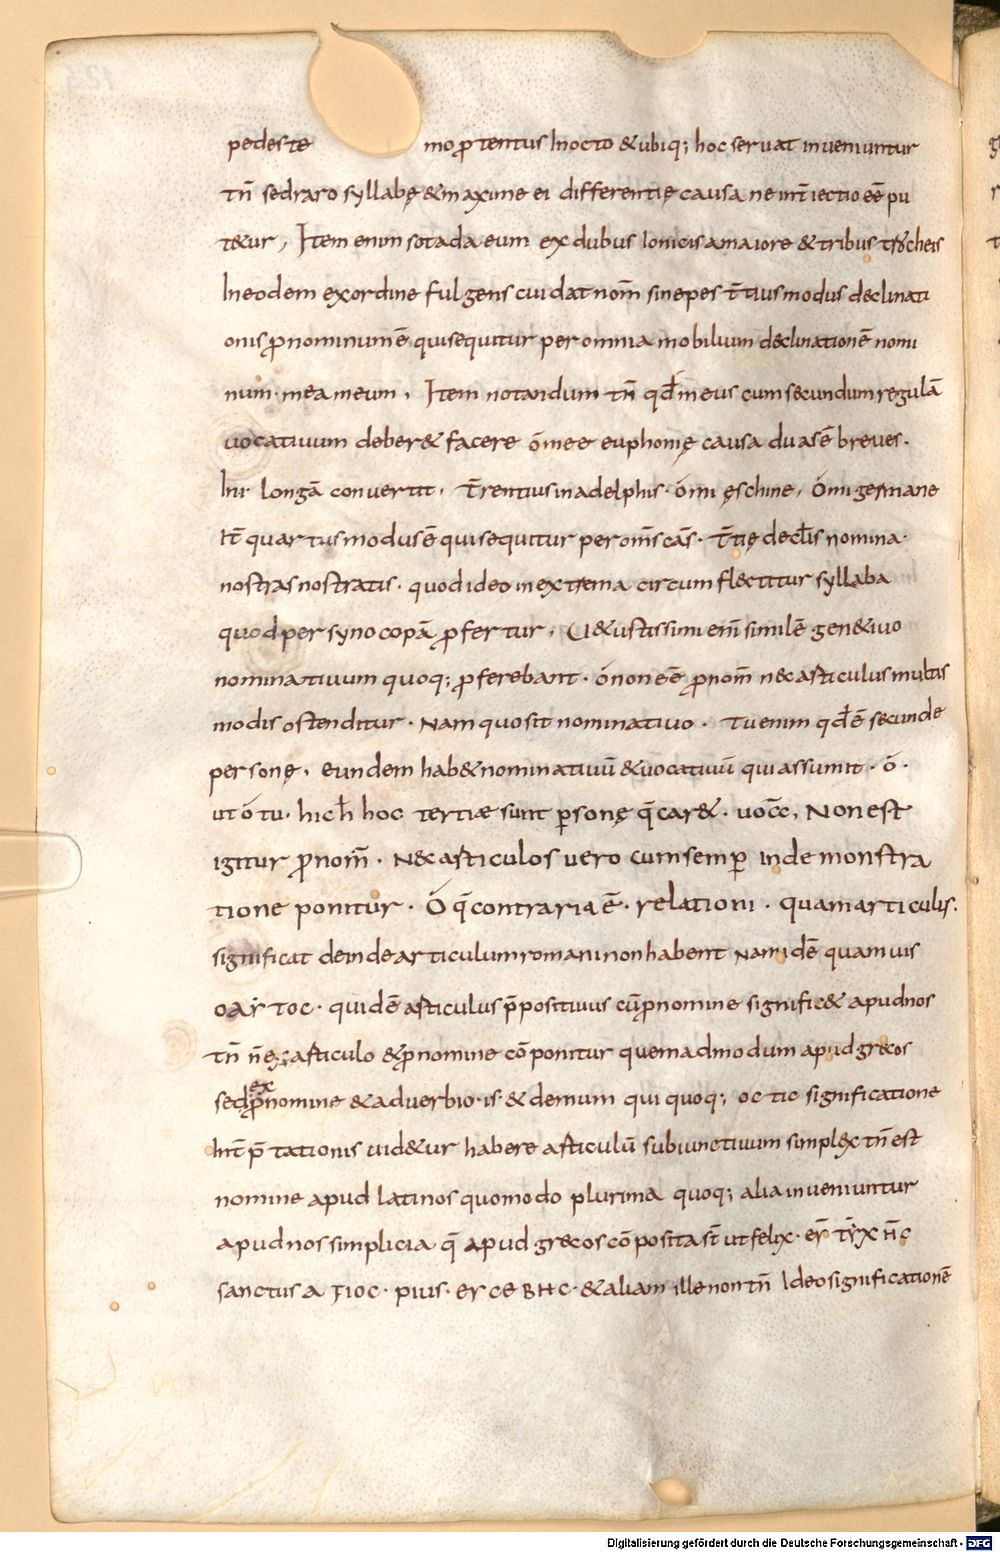 pedes te mo ꝓtentus In octo & ubiq; hoc seruat inueniuntur
tn̄ sed raro syllabę & maxime ei differentię causa ne int̄iectio eē pu
t&ur, Item enim sotadaeum ex dubus Ionicis amaiore & tribus trocheis
In eodem ex ordine fulgens cui dat nom̄ sinepes t̄tius modus declinati
onis ꝓnominum ē qui sequitur per omnia mobilium declinationē nomi
num· mea meum, Item notandum tn̄ qđ meus cum secundum regulā
uocatiuum deber& facere ó mee euphonię causa duas ē breues.
In i· longā conuertit, t̄rentius in adelphis· ó mi ęschine, ó mi germane
It̄ quartus modus ē qui sequitur per om̄s cās· t̄tię decl̄is nomina·
nostras nostratis· quod ideo in extrema circumflectitur syllaba
quod per synocopā ꝓfertur, U&ustissimi eni͞ similē gen&iuo
nominatiuum quoq; ꝓferebant· ó non eē ꝓnom̄ nec articulus multis
modis ostenditur· Nam quo sit nominatiuo· tu enim qđ ē secunde
personę, eundem hab& nominatiuū & uocatiuū qui assumit· ó·
ut ó tu· hic h̄ hoc tertiæ sunt ꝑsonę q̄ car&· uoc̄c, Non est
igitur ꝓnom̄· Nec articulos uero cum semꝑ in demonstra
tione ponitur· Ó q̄ contraria ē· relationi· quam articulis.
significat deinde articulum romani non habent Nam idē quamuis
OAΫTOC· quidē articulus p̄positiuus cū ꝓnomine signific& apud nos
tn̄ n̄ ex articulo & ꝓnomine cō ponitur quemadmodum apud grecos
sed ex ꝓnomine & aduerbio· is· & demum qui quoq; oc tic significatione
Int̄p̄tationis uid&ur habere articulū subiunctiuum simplex tn̄ est
nomine apud latinos quomodo plurima quoq; alia inueniuntur
apud nos simplicia q̄ apud grecos cō posita st̄ ut felix· er̄ tr̄x H̄C
sanctus a ΓIOC· pius· er ce BHC· & aliam ille non tn̄ Ideo significationē
Digitalisierung gefördert durch die Deutsche Forschungsgemeinschaft - DFG